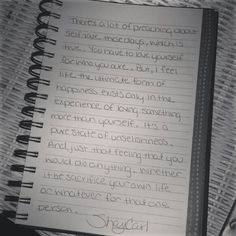 There's a lot of preaching about
self love these days, which is
true. You have to love yourself
for who you are. But, I feel
like the ultimate form of
happiness exists only in the
experience of loving something
more than yourself. It's a
pure state of unselfishness.
And, just that feeling that you
would do anything. Whether
it be sacrifice your own life
or whatever for that one
person.
ShayCarl